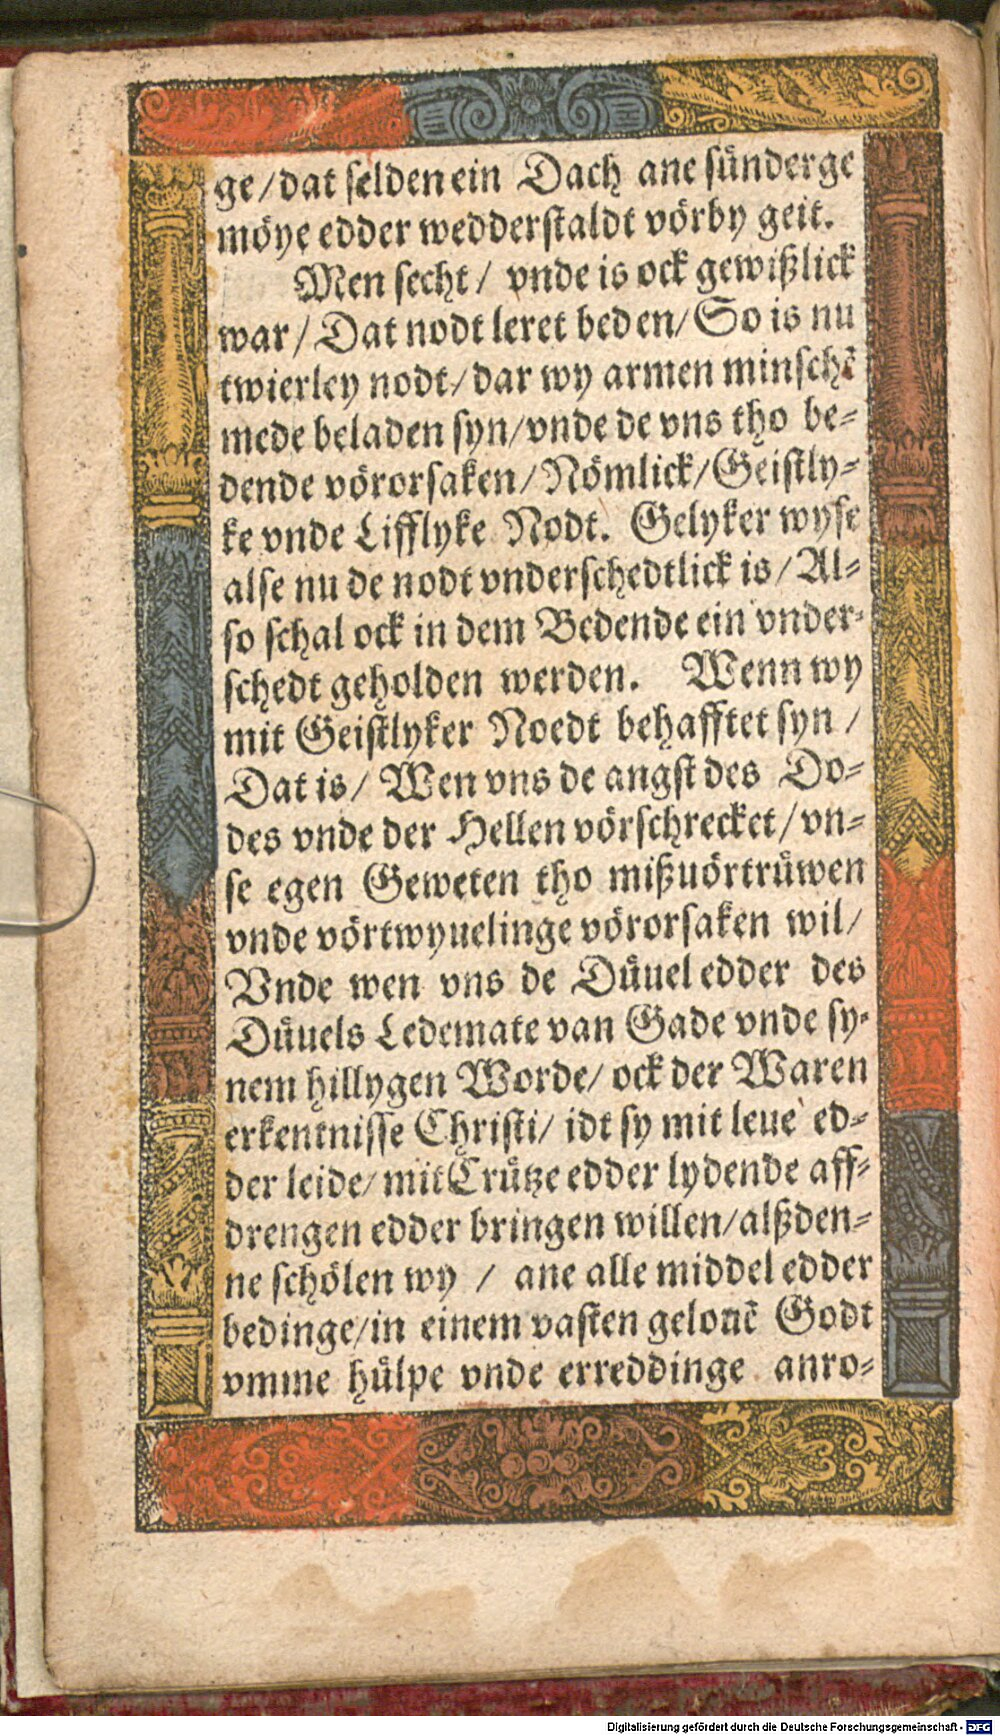 ge/dat selden ein Dach ane sünderge
möye edder wedderstaldt vörby geit.
Men secht/ vnde is ock gewißlick
war/Dat nodt leret beden/So is nu
twierley nodt/dar wy armen minschē
mede beladen syn/vnde de vns tho be⸗
dende vörorsaken/Nömlick/Geistly⸗
ke vnde Lifflyke Nodt. Gelyker wyse
alse nu de nodt vnderschedtlick is/Al⸗
so schal ock in dem Bedende ein vnder⸗
schedt geholden werden. Wenn wy
mit Geistlyker Noedt behafftet syn/
Dat is/Wen vns de angst des Do⸗
des vnde der Hellen vörschrecket/vn⸗
se egen Geweten tho mißuörtrüwen
vnde vörtwyuelinge vörorsaken wil/
Vnde wen vns de Düuel edder des
Düuels Ledemate van Gade vnde sy⸗
nem hillygen Worde/ock der Waren
erkentnisse Christi/idt sy mit leue ed⸗
der leide/mit Crütze edder lydende aff⸗
drengen edder bringen willen/alßden⸗
ne schölen wy / ane alle middel edder
bedinge/in einem vasten gelouē Godt
vmme hülpe vnde erreddinge anro⸗
Digitalisierung gefördert durch die Deutsche Forschungsgemeinschaft - DFG